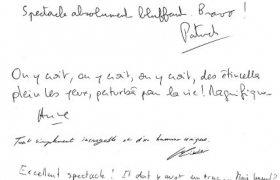 Spectacle absolument bluffant. Bravo !
Patrick
On y croit, on y croit, on y croit, des étincelles
plein les yeux, perturbé par la vie ! Magnifique
Anne
Tout simplement incroyable et d'un humour unique.
Excellent spectacle ! Il doit y avoir un truc... Mais